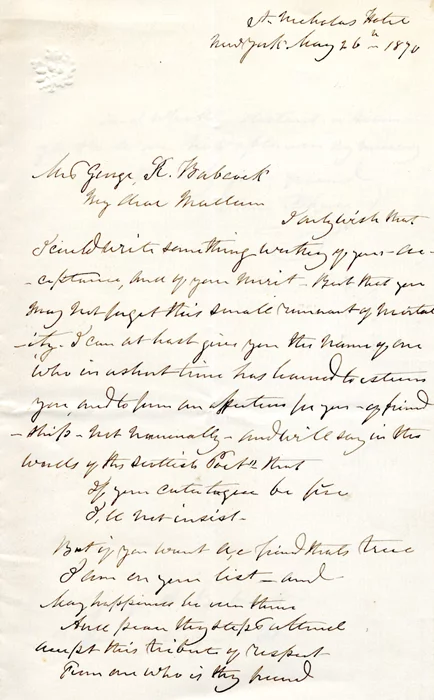 St. Nicholas Hotel
New York May 26th 1870
Mrs George R. Babcock
My dear Madam
I only wish that
I could write something worthy of your ac-
-ceptance, and of your merit - But that you
may not forget this small remnant of mortal
-ity. I can at least give you the name of one
who in a short time has learned to esteem
you, and to form an affection for you - of friend
-ship - not nominally - and will say in the
words of the Scottish Poet that
If your catalogue be fu'
I'll not insist -
But if you want a friend that's true
I am on your list - and
May happiness be ever thine
And peace thy steps attend
accept this tribute of respect
From one who is thy friend